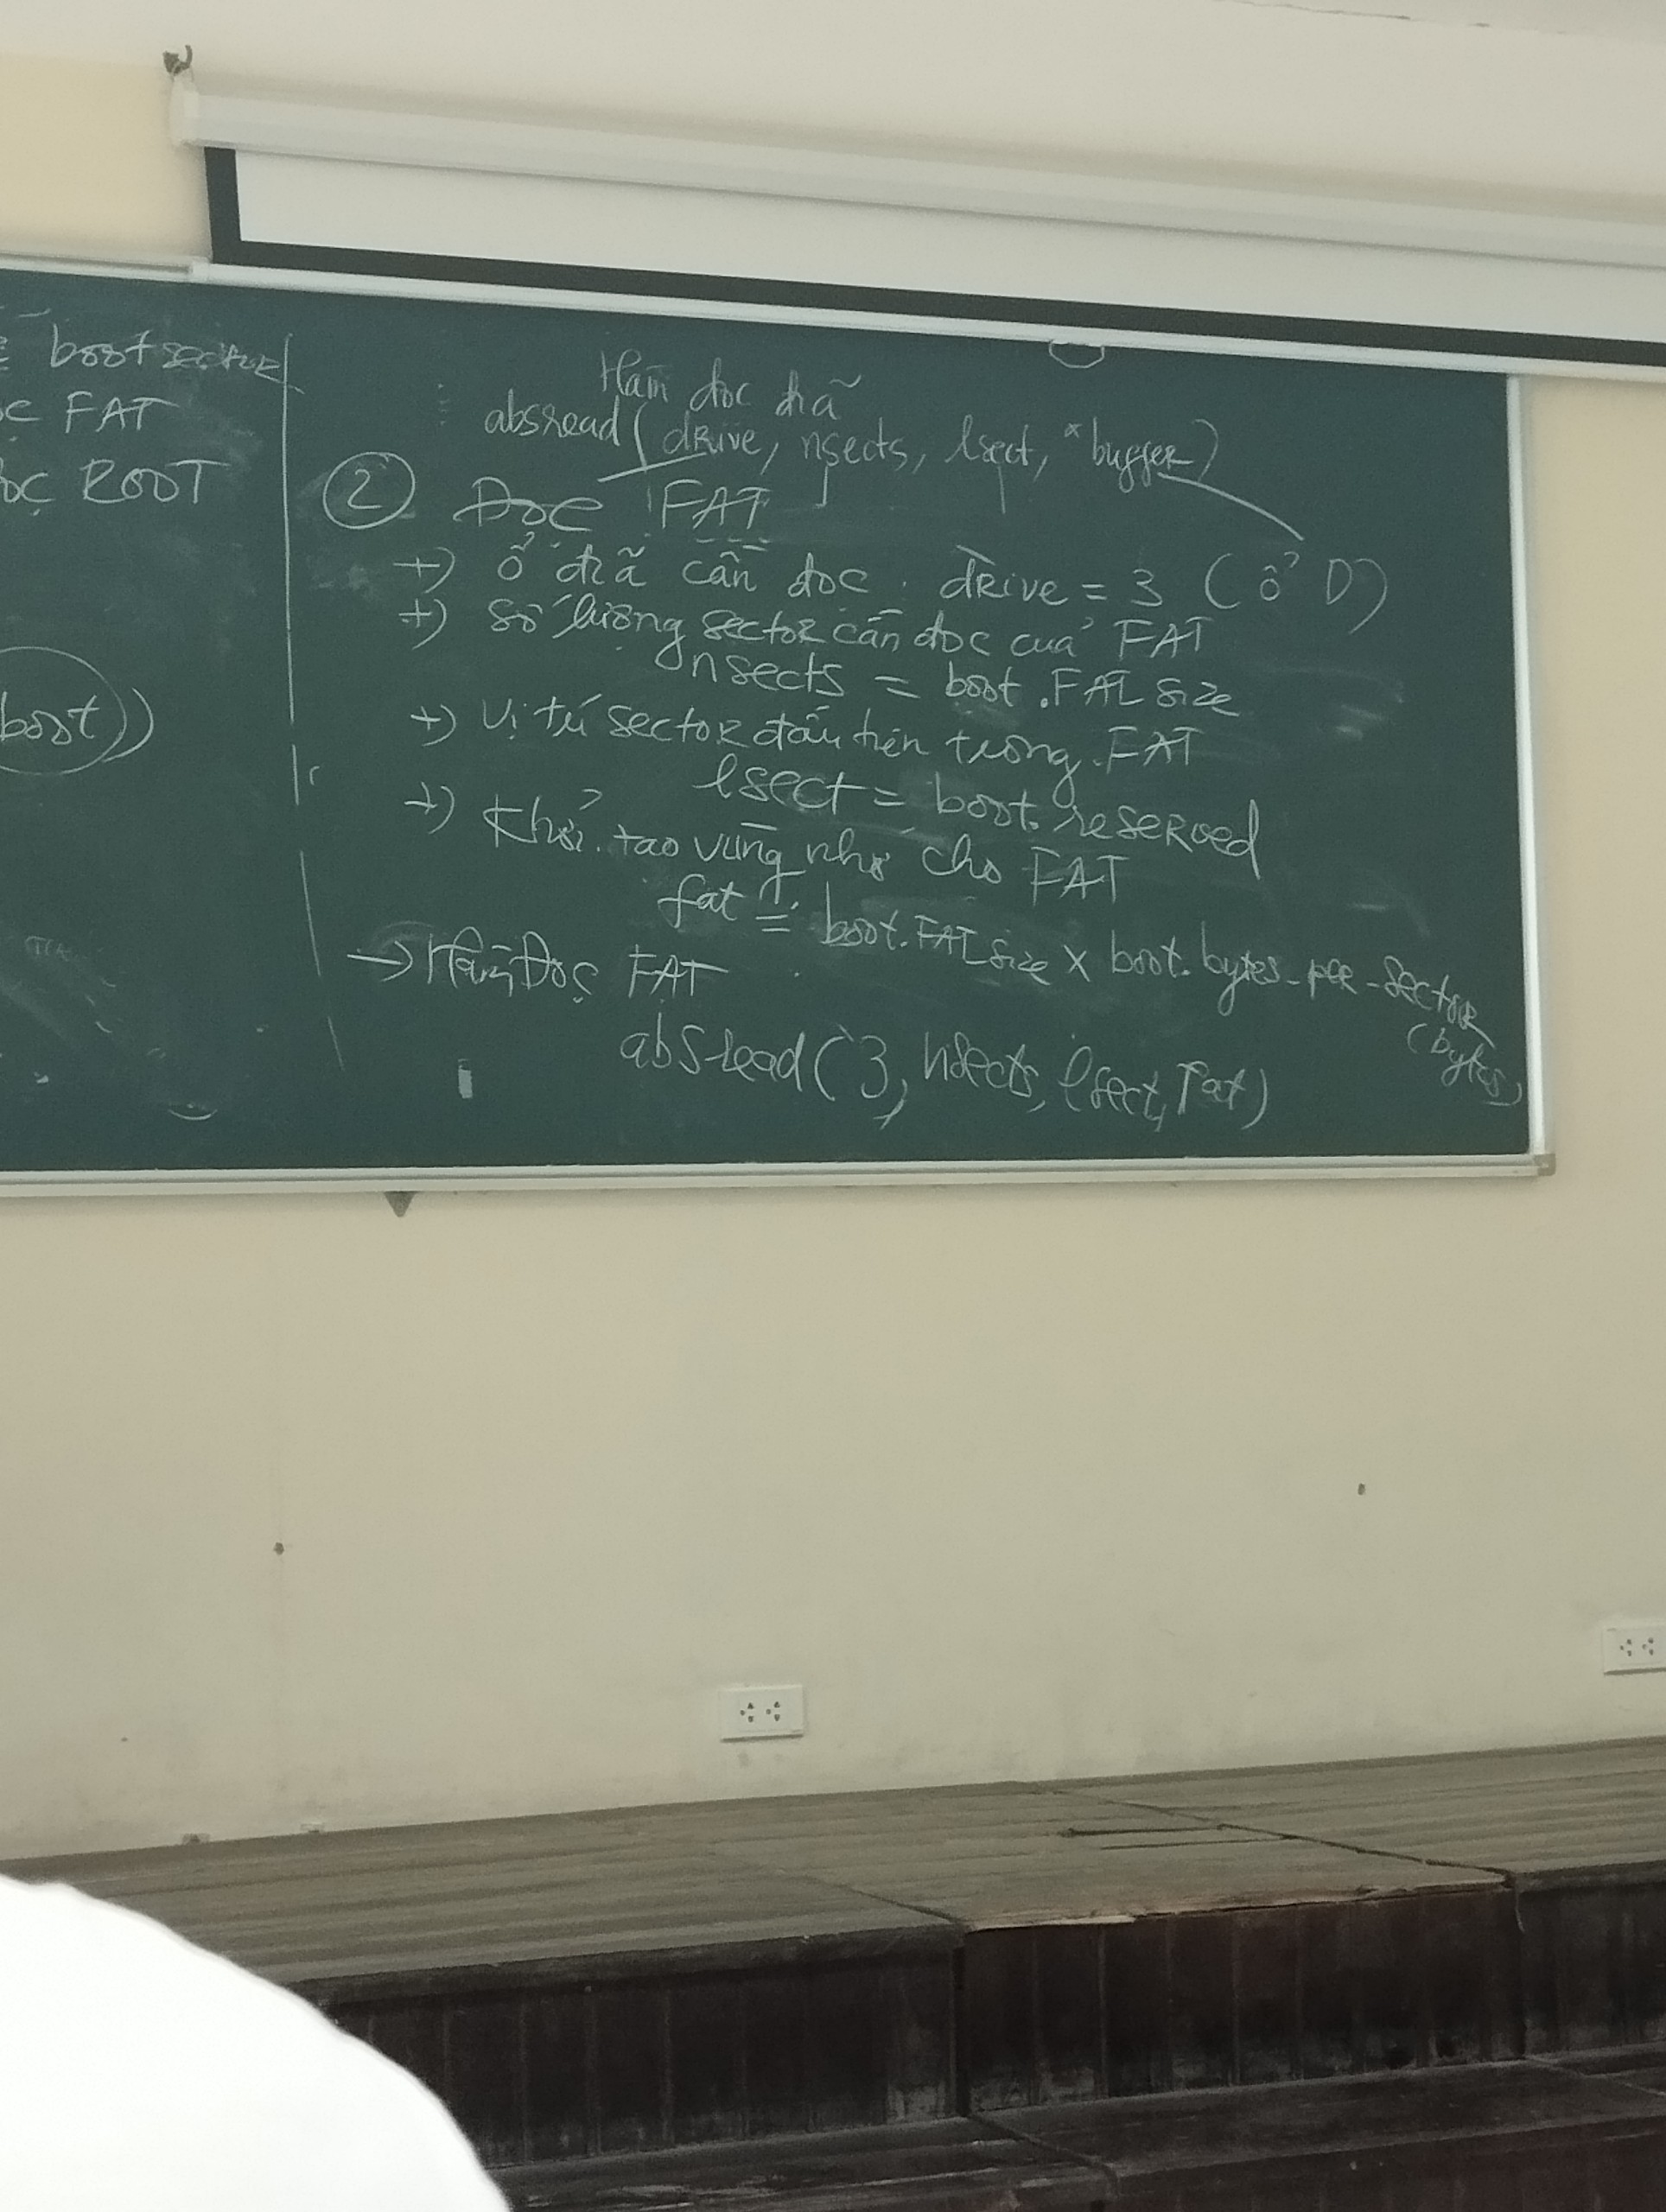 bootsector
FAT
ROOT
boot))
Hàm đọc đĩa
absread( drive, nsects, lsect, *buffer)
② Đọc FAT
+) ổ đĩa cần đọc : drive = 3 ( ổ D)
+) số lượng sector cần đọc của FAT
nsects = boot.FAT_size
+) vị trí sector đầu tiên trong FAT
lsect = boot.reserved
+) Khởi tạo vùng nhớ cho FAT
fat = boot.FAT_size x boot.bytes_per_sector
(bytes)
→ Hàm Đọc FAT
absread( 3, nsects, lsect, fat)